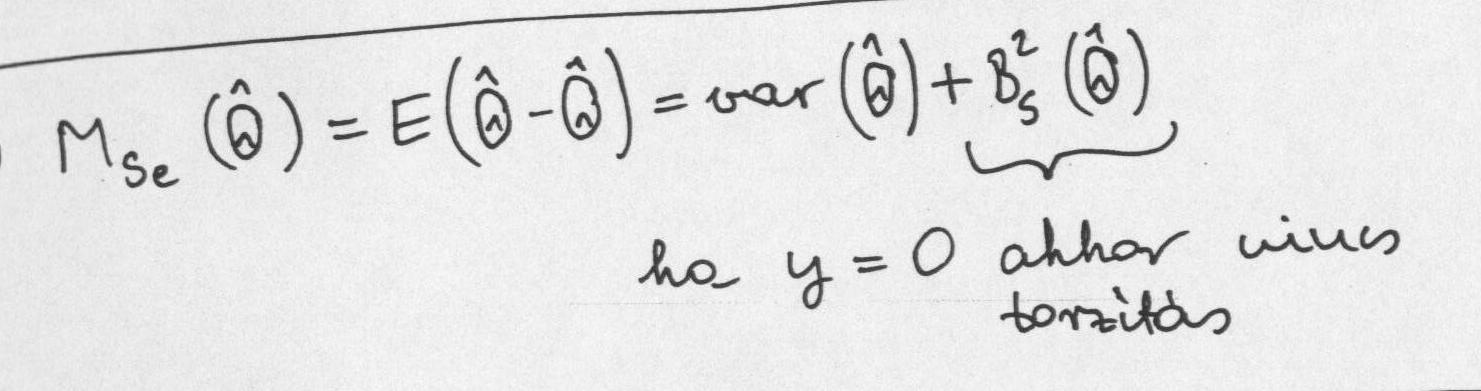 M_Se (Θ̂) = E(Θ̂ - Θ̂) = var (Θ̂) + B_s^2 (Θ̂)
ha y = 0 akkor nincs
torzítás